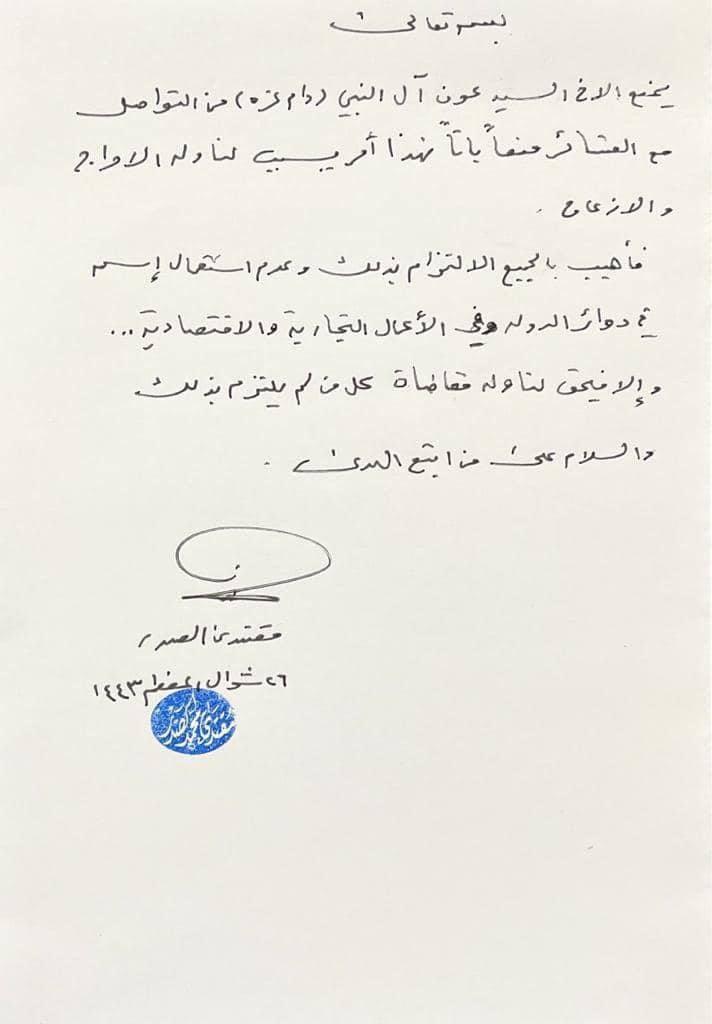 بسمه تعالى
يمنع الاخ السيد عون آل النبي (دام عزه) من التواصل
مع العشائر منعاً باتاً فهذا أمر يسبب لنا وله الاحراج
والازعاج .
فأهيب بالجميع الالتزام بذلك وعدم استعمال إسمه
في دوائر الدوله وفي الأعمال التجارية والاقتصادية ...
وإلا فيحق لنا وله مقاضاة كل من لم يلتزم بذلك
والسلام على من اتبع الهدى .
مقتدى الصدر
٢٦ شوال المعظم ١٤٤٣
مقتدى محمد الصدر